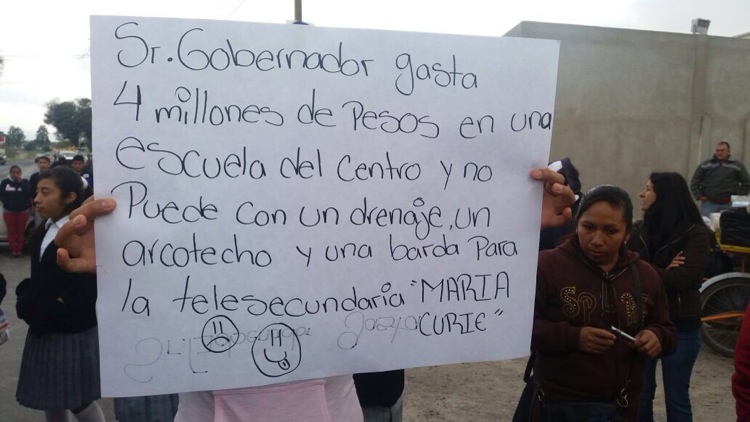 Sr. Gobernador gasta
4 millones de Pesos en una
escuela del Centro y no
Puede con un drenaje, un
arcotecho y una barda Para
la telesecundaria "MARIA
CURIE"